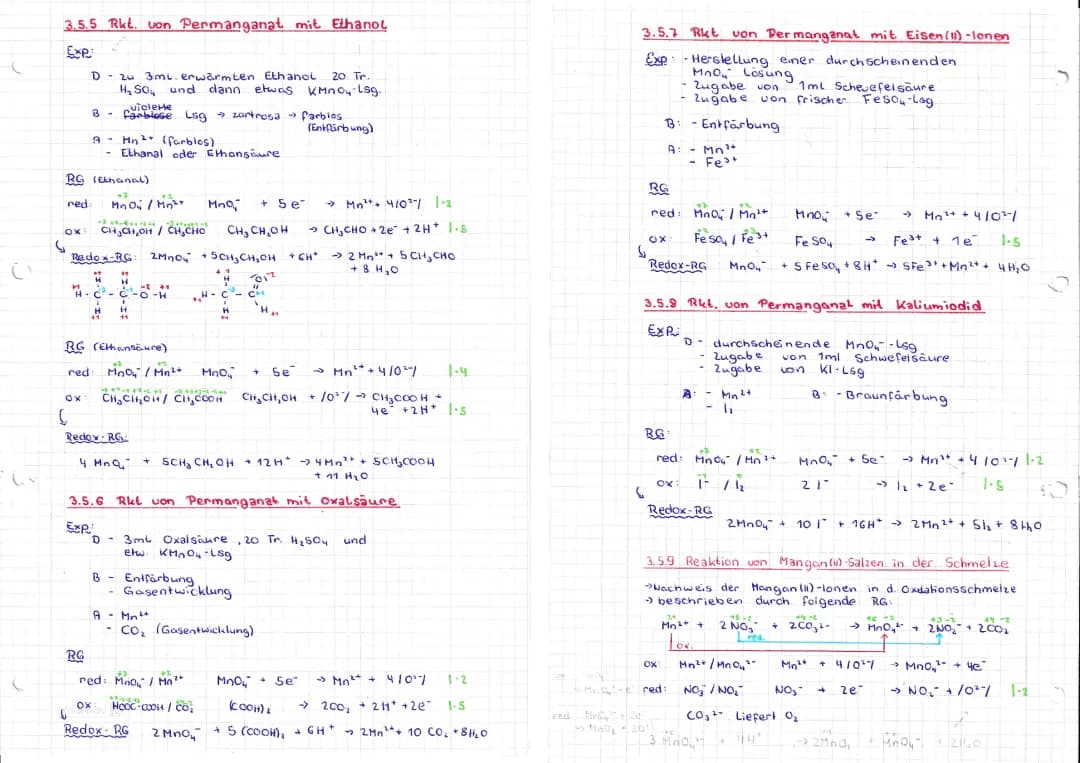 3.5.5 Rkt. von Permanganat mit Ethanol
Exp:
D - zu 3mL erwärmten Ethanol 20 Tr.
H₂SO₄ und dann etwas KMnO₄-Lsg.
violette
B - farblose Lsg → zartrosa → farblos
(Entfärbung)
A - Mn²⁺ (farblos)
- Ethanal oder Ethansäure
RG (Ethanal)
red: MnO₄⁻ / Mn²⁺ MnO₄⁻ + 5e⁻ → Mn²⁺ + 4/O²⁻/ |·2
ox: CH₃CH₂OH / CH₃CHO CH₃CH₂OH → CH₃CHO + 2e⁻ + 2H⁺ |·5
Redox-RG: 2MnO₄⁻ + 5CH₃CH₂OH + 6H⁺ → 2Mn²⁺ + 5CH₃CHO
+ 8 H₂O
H H H O
H - C - C - O - H H - C - C
H H H H
RG (Ethansäure)
red: MnO₄⁻ / Mn²⁺ MnO₄⁻ + 5e⁻ → Mn²⁺ + 4/O²⁻/ |·4
ox: CH₃CH₂OH / CH₃COOH CH₃CH₂OH + /O²⁻/ → CH₃COOH +
4e⁻ + 2H⁺ |·5
Redox-RG:
4 MnO₄⁻ + 5CH₃CH₂OH + 12H⁺ → 4Mn²⁺ + 5CH₃COOH
+ 11 H₂O
3.5.6 Rkt von Permanganat mit Oxalsäure
Exp:
D - 3mL Oxalsäure, 20 Tr. H₂SO₄ und
etw. KMnO₄-Lsg
B - Entfärbung
- Gasentwicklung
A - Mn²⁺
- CO₂ (Gasentwicklung)
RG
red: MnO₄⁻ / Mn²⁺ MnO₄⁻ + 5e⁻ → Mn²⁺ + 4/O²⁻/ |·2
ox: HOOC-COOH / CO₂ (COOH)₂ → 2CO₂ + 2H⁺ + 2e⁻ |·5
Redox-RG 2MnO₄⁻ + 5(COOH)₂ + 6H⁺ → 2Mn²⁺ + 10 CO₂ + 8H₂O
3.5.7 Rkt von Permanganat mit Eisen(II)-Ionen
Exp: - Herstellung einer durchscheinenden
MnO₄⁻ Lösung
- Zugabe von 1ml Schwefelsäure
- Zugabe von frischer FeSO₄-Lsg
B: - Entfärbung
A: - Mn²⁺
- Fe³⁺
RG
red: MnO₄⁻ / Mn²⁺ MnO₄⁻ + 5e⁻ → Mn²⁺ + 4/O²⁻/
ox: FeSO₄ / Fe³⁺ FeSO₄ → Fe³⁺ + 1e⁻ |·5
Redox-RG MnO₄⁻ + 5FeSO₄ + 8H⁺ → 5Fe³⁺ + Mn²⁺ + 4H₂O
3.5.8 Rkt. von Permanganat mit Kaliumiodid
Exp:
D - durchscheinende MnO₄⁻-Lsg
- Zugabe von 1ml Schwefelsäure
- Zugabe von KI-Lsg
A: - Mn²⁺ B: - Braunfärbung
- I₂
RG:
red: MnO₄⁻ / Mn²⁺ MnO₄⁻ + 5e⁻ → Mn²⁺ + 4/O²⁻/ |·2
ox: I⁻ / I₂ 2I⁻ → I₂ + 2e⁻ |·5
Redox-RG
2MnO₄⁻ + 10 I⁻ + 16H⁺ → 2Mn²⁺ + 5I₂ + 8H₂O
3.5.9 Reaktion von Mangan(II)-Salzen in der Schmelze
→ Nachweis der Mangan(II)-Ionen in d. Oxdationsschmelze
→ beschrieben durch folgende RG:
Mn²⁺ + 2NO₃⁻ + 2CO₃²⁻ → MnO₄²⁻ + 2NO₂⁻ + 2CO₂
red.
ox.
ox: Mn²⁺/MnO₄²⁻ Mn²⁺ + 4/O²⁻/ → MnO₄²⁻ + 4e⁻
red: NO₃⁻/NO₂⁻ NO₃⁻ + 2e⁻ → NO₂⁻ + /O²⁻/ |·2
CO₃²⁻ liefert O₂